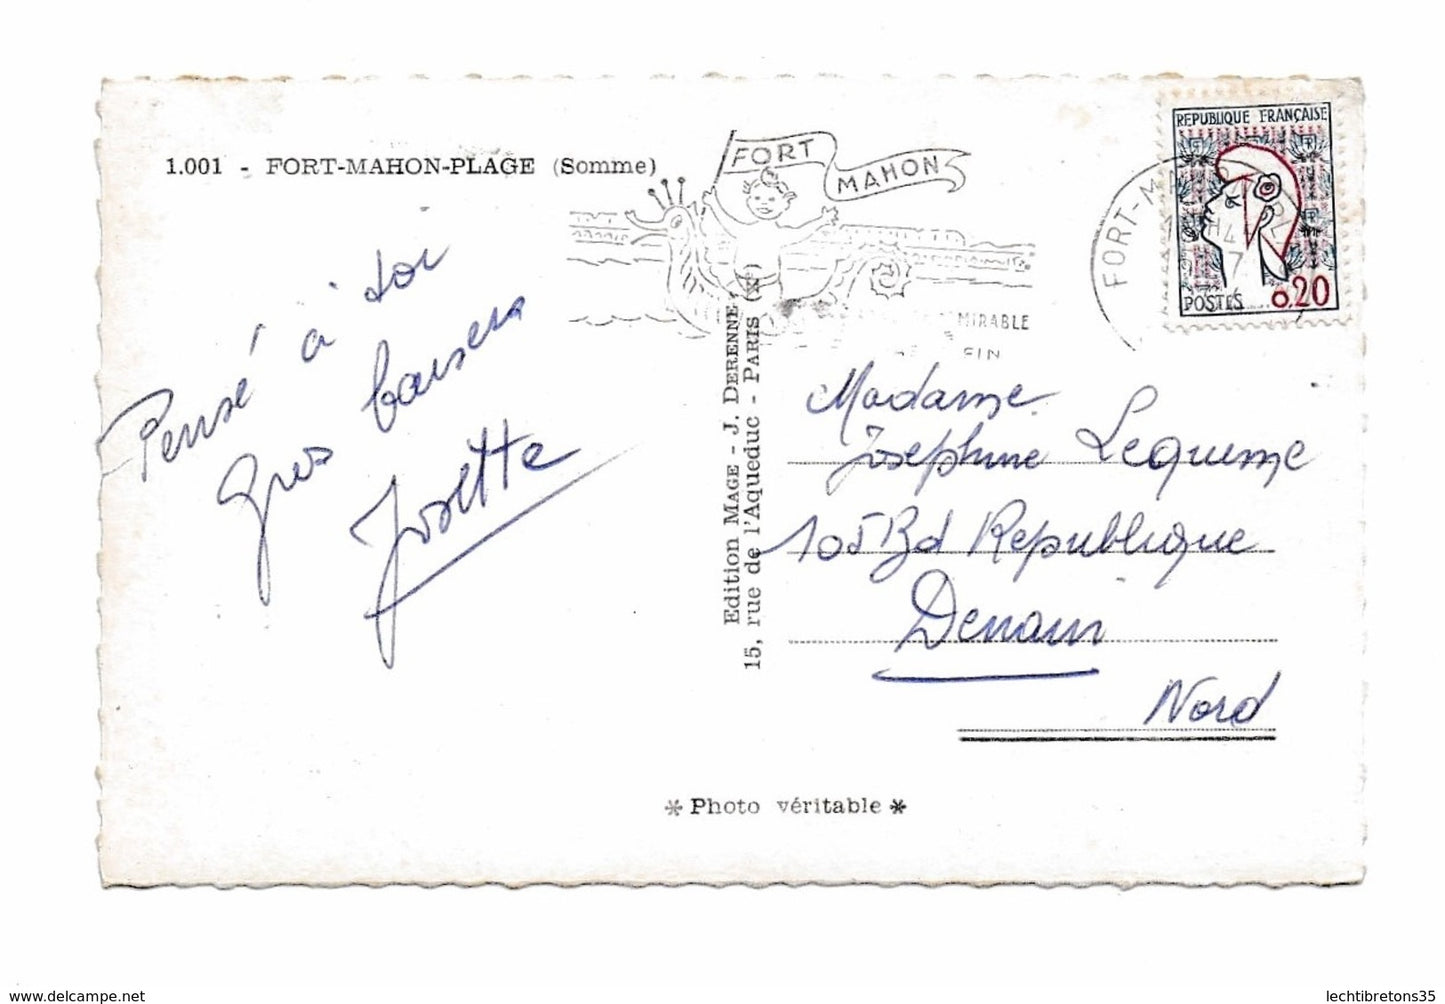 1.001 - FORT-MAHON-PLAGE (Somme)
FORT MAHON
MIRABLE
FIN
FORT-MA
REPUBLIQUE FRANÇAISE
POSTES 0.20
Pensé à toi
Gros baisers
Josette
Edition MAGE - J. DERENNE
15, rue de l'Aqueduc - PARIS (Xe)
Madame
Josephine Lequime
105 Bd Republique
Denain
Nord
* Photo véritable *
www.delcampe.net
lechtibretons35